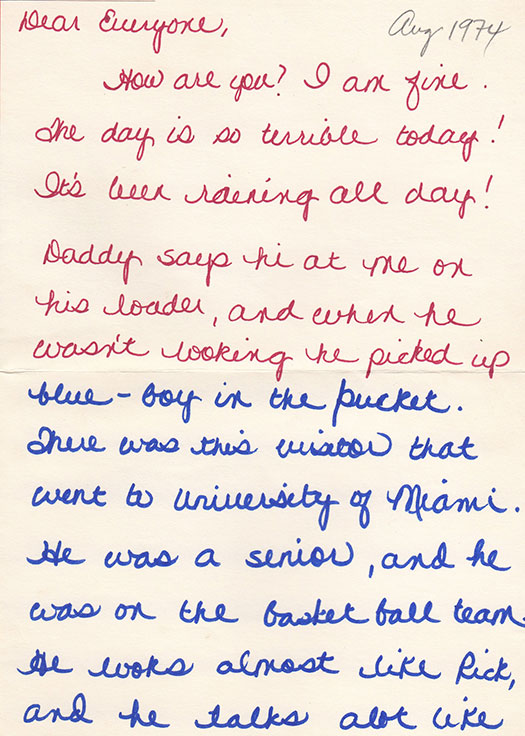 Dear Everyone,
Aug 1974
How are you? I am fine.
The day is so terrible today!
It's been raening all day!
Daddy says hi at me on
his loader, and when he
wasn't looking he picked up
blue-boy in the pucket.
There was this visator that
went to university of Miami.
He was a senior, and he
was on the basket ball team.
He looks almost like Rick,
and he talks alot like